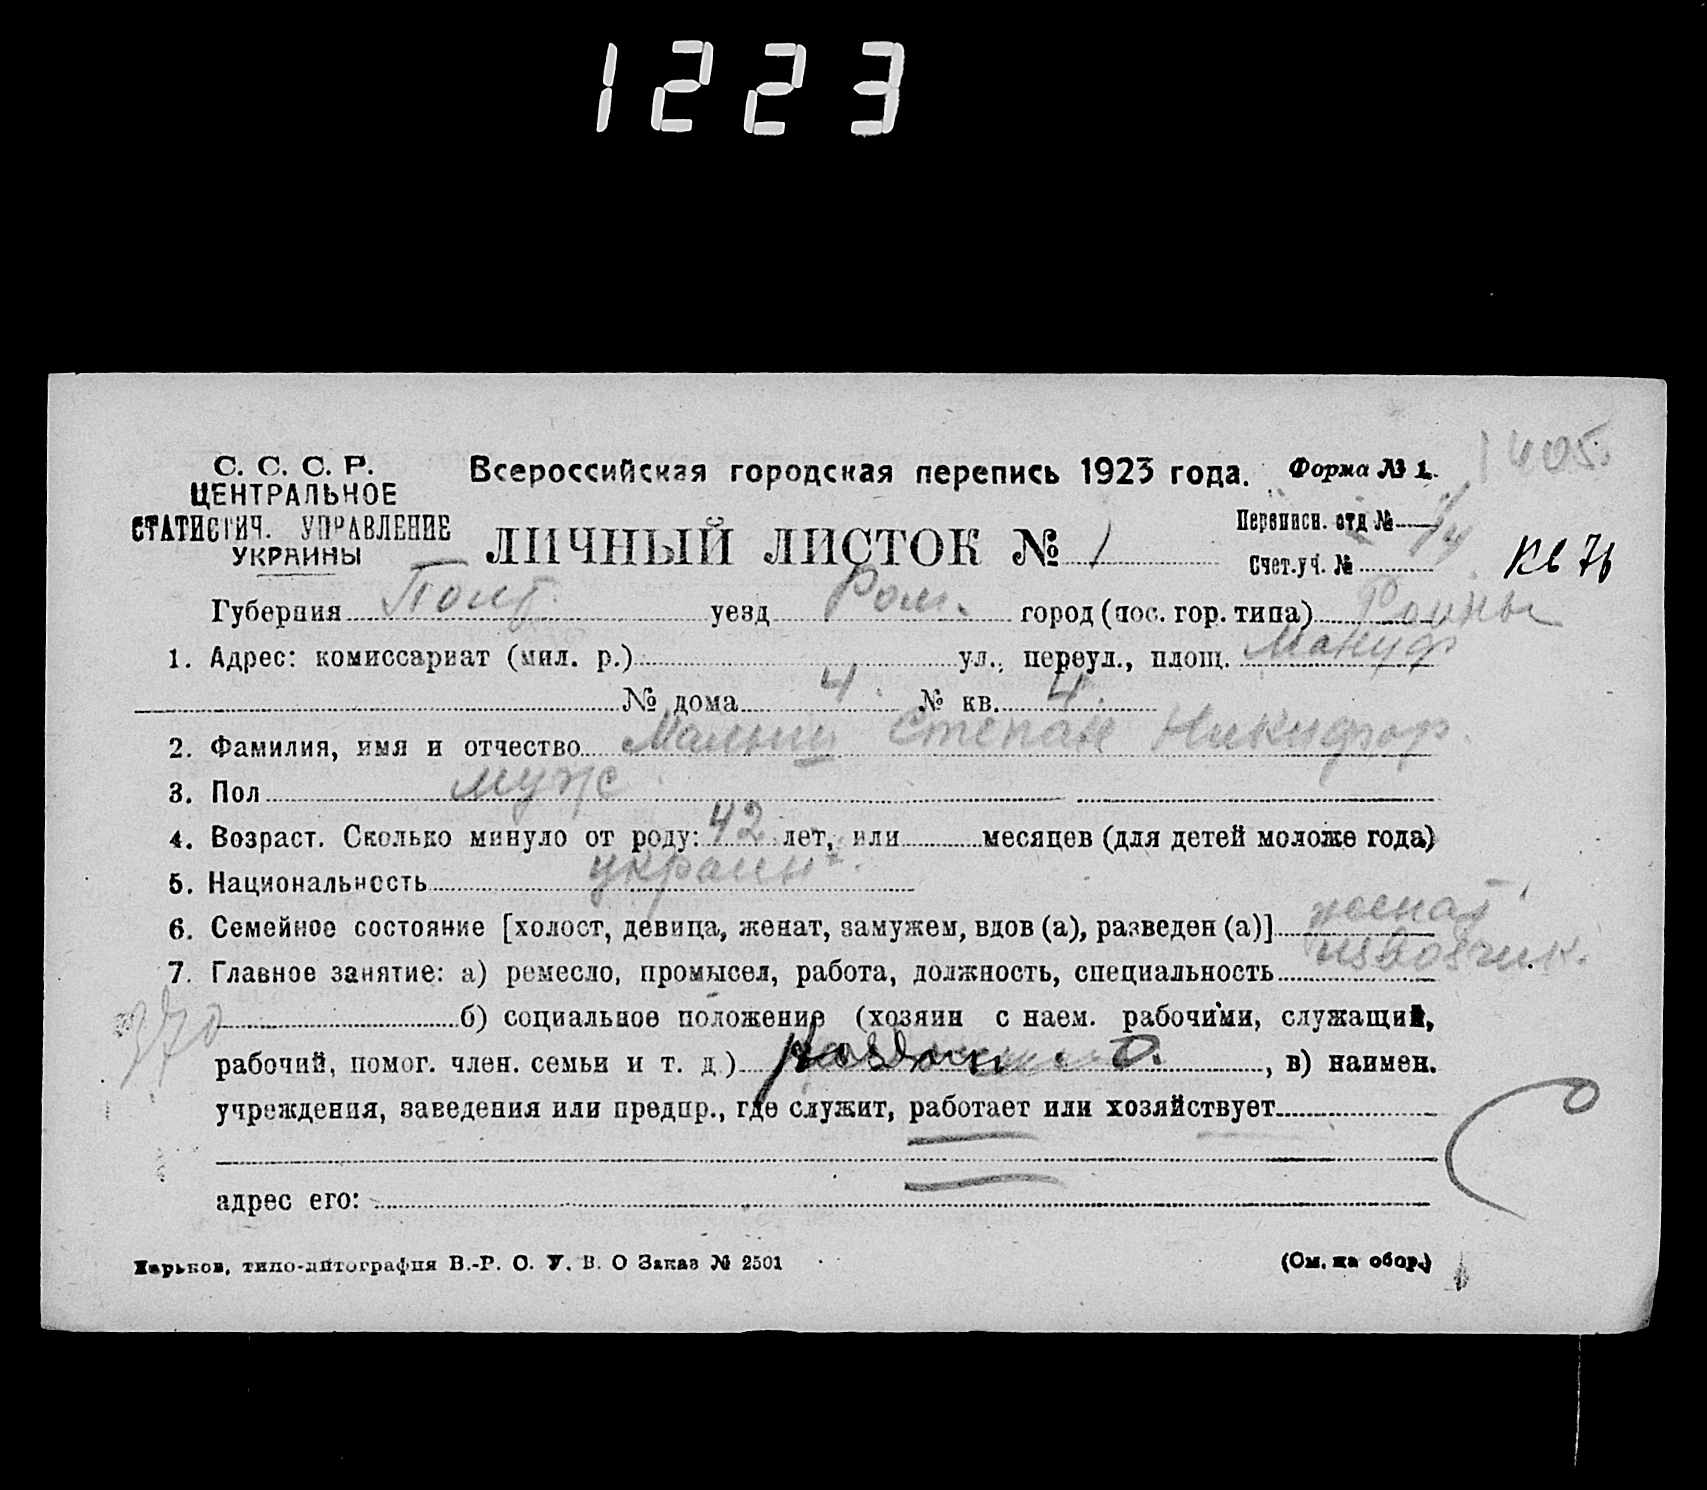 1223
1405.
С. С. С. Р.
ЦЕНТРАЛЬНОЕ
СТАТИСТИЧ. УПРАВЛЕНИЕ
УКРАИНЫ
Всероссийская городская перепись 1923 года. Форма № 1.
ЛИЧНЫЙ ЛИСТОК № 1
Переписн. отд №
Счет.уч. №
Кв 76
Губерния Полт. уезд Ром. город (пос. гор. типа) Ромны
1. Адрес: комиссариат (мил. р.) ул., переул., площ. Мануф
№ дома 4. № кв. 4.
2. Фамилия, имя и отчество Малыш Степан Никифор.
3. Пол муж
4. Возраст. Сколько минуло от роду: 42 лет, или месяцев (для детей моложе года)
5. Национальность украин.
6. Семейное состояние [холост, девица, женат, замужем, вдов (а), разведен (а)] женат
7. Главное занятие: а) ремесло, промысел, работа, должность, специальность извозчик.
370
б) социальное положение (хозяин с наем. рабочими, служащий,
рабочий, помог. член. семьи и т. д) , в) наимен.
учреждения, заведения или предпр., где служит, работает или хозяйствует
адрес его:
Харьков, типо-литография В.-Р. О. У. В. О Заказ № 2501
(См. на обор.)